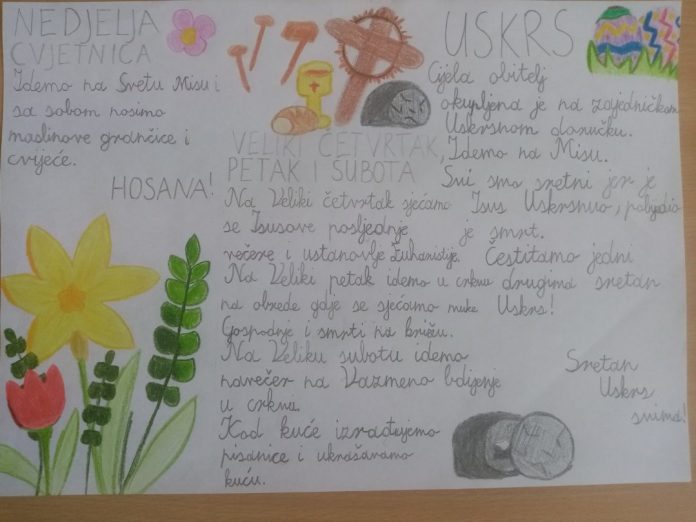 NEDJELJA
CVJETNICA
Idemo na Svetu Misu i
sa sobom nosimo
maslinove grančice i
cvijeće.
HOSANA!
VELIKI ČETVRTAK,
PETAK I SUBOTA
Na Veliki četvrtak sjećamo
se Isusove posljednje
večere i ustanovlje Euharistije.
Na Veliki petak idemo u crkvu
na obrede gdje se sjećamo muke
Gospodnje i smrti na križu.
Na Veliku subotu idemo
navečer na Vazmeno bdijenje
u crkvi.
Kod kuće izrađujemo
pisanice i ukrašavamo
kuću.
USKRS
Cijela obitelj
okupljena je na zajedničkom
Uskrsnom doručku.
Idemo na Misu.
Svi smo sretni jer je
Isus Uskrsnuo, pobijedio
je smrt.
Čestitamo jedni
drugima sretan
Uskrs!
Sretan
Uskrs
svima!